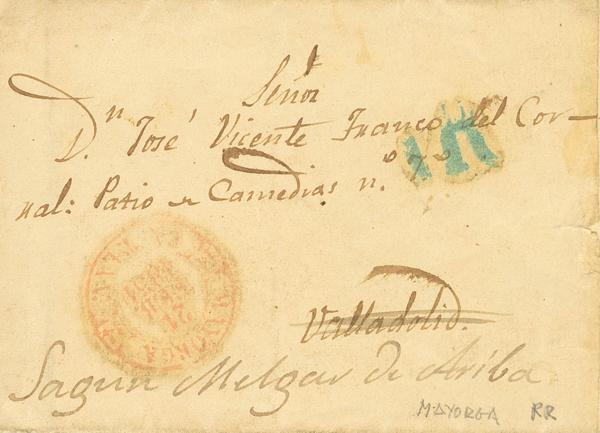 Señor
Dn. José Vicente Franco del Cor-
ral: Patio de Comedias n.º 7º
Valladolid.
Sagun Melgar de Ariba
MAYORGA RR